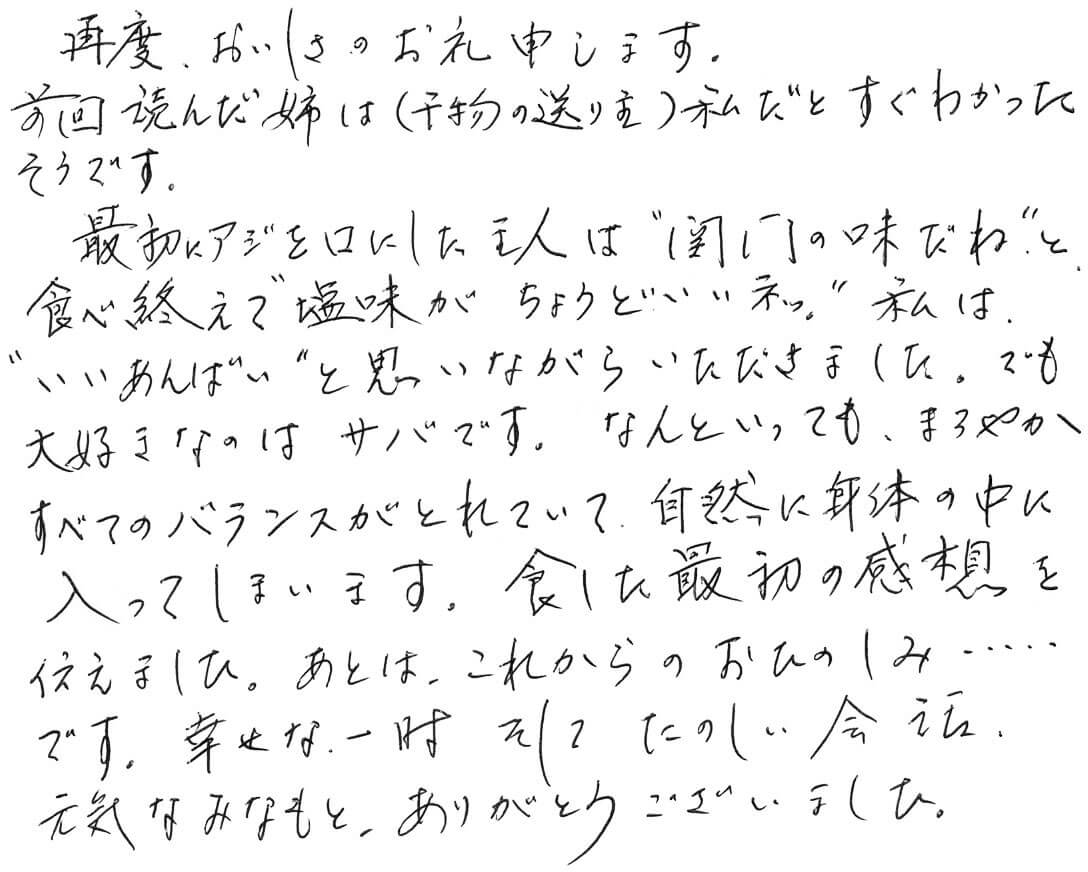 再度、おいしさのお礼申します。
前回読んだ姉は(干物の送り主)私だとすぐわかった
そうです。
最初にアジを口にした主人は“関門の味だね”と、
食べ終えて“塩味がちょうどいいネッ。”私は、
“いいあんばい”と思いながらいただきました。でも
大好きなのはサバです。なんといっても、まろやか
すべてのバランスがとれていて、自然に身体の中に
入ってしまいます。食した最初の感想を
伝えました。あとは、これからのおたのしみ……
です。幸せな一時そしてたのしい会話、
元気なみなもと、ありがとうございました。